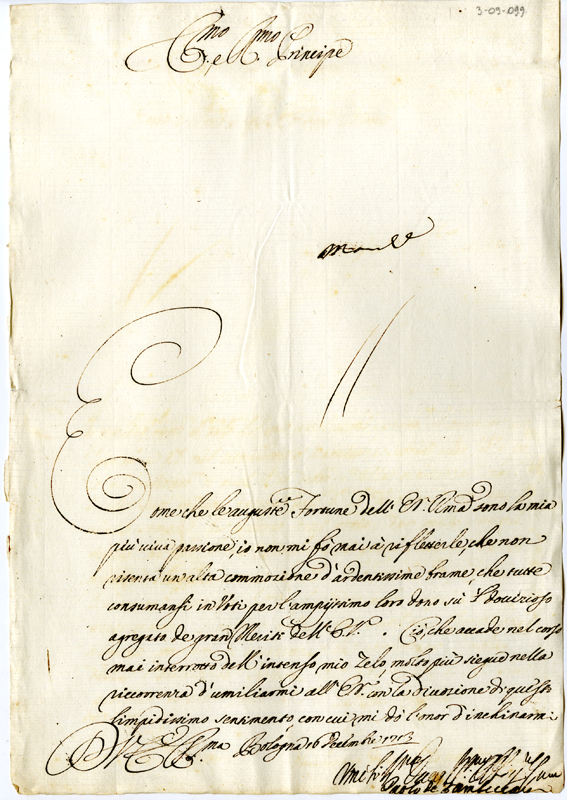 3-09-099
Em̃o Rm̃o
Sr. e Pr. Principe
Come che le auguste Fortune dell' Em̃a sono la mia
più viva passione, io non mi fò mai à rifletterle che non
risenta un'alta commozione d'ardentissime brame, che tutte
consumansi in Voti per l'ampissimo loro dono sù 'l dovizioso
agregato de gran Meriti dell' E.V. Ciò che accade nel corso
mai interrotto dell' intenso mio Zelo molto più siegue nella
ricorrenza d'umiliarmi all' con la divozione di questo
limpidissimo sentimento con cui mi dò l'onor d'inchinarmi
Bologna 16 Decembre 1713